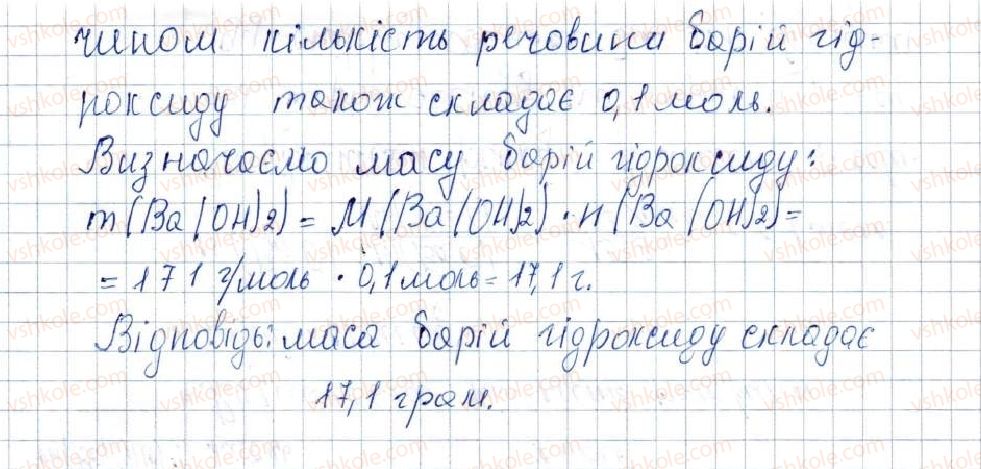 чином кількість речовини барій гід-
роксиду також складає 0,1 моль.
Визначаємо масу барій гідроксиду:
m(Ba(OH)2) = M(Ba(OH)2) · n(Ba(OH)2) =
= 171 г/моль · 0,1 моль = 17,1 г.
Відповідь: маса барій гідроксиду складає
17,1 грам.